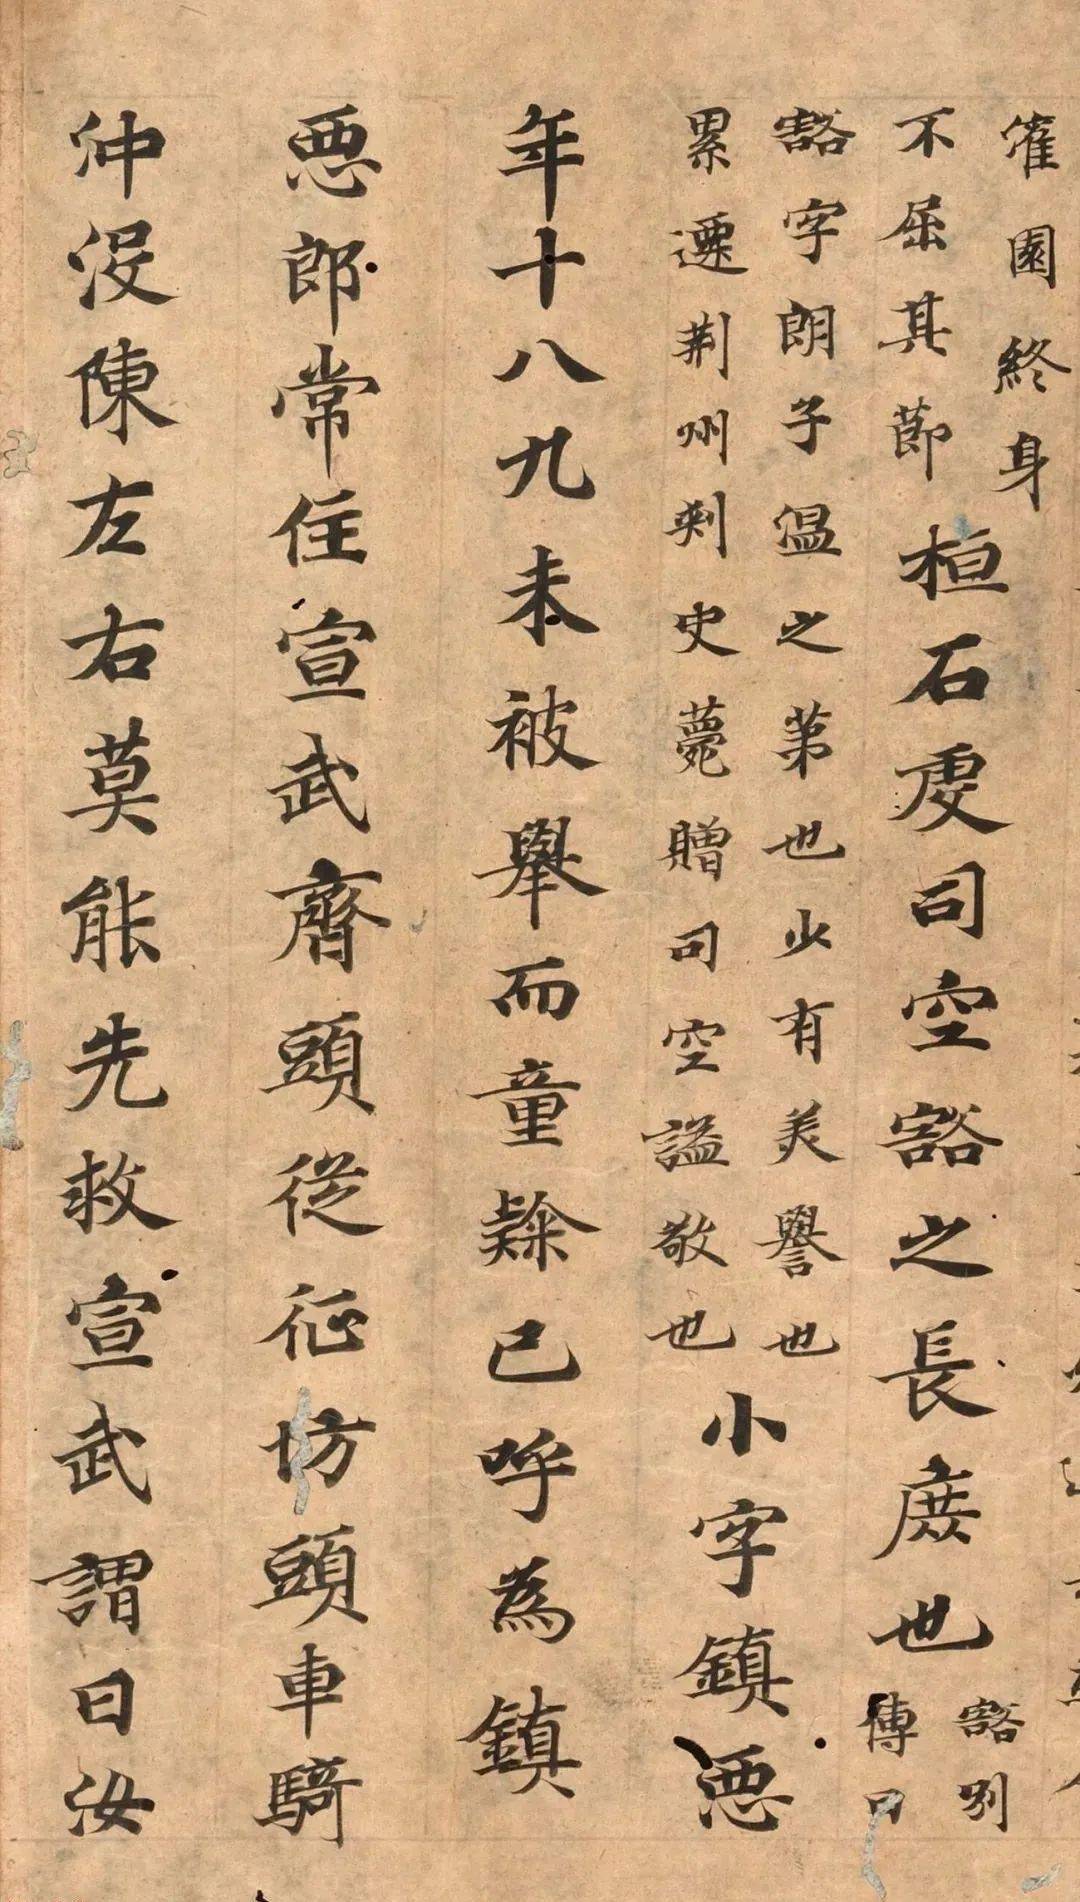 灌園終身
不屈其莭
桓石虔司空豁之長庶也
豁別
傳曰
豁字朗子温之第也少有美譽也
累遷荆州刺史薨贈司空謚敬也
小字鎮惡
年十八九未被舉而童隸已呼為鎮
惡郎常住宣武齋頭從征枋頭車騎
沖没陳左右莫能先救宣武謂曰汝